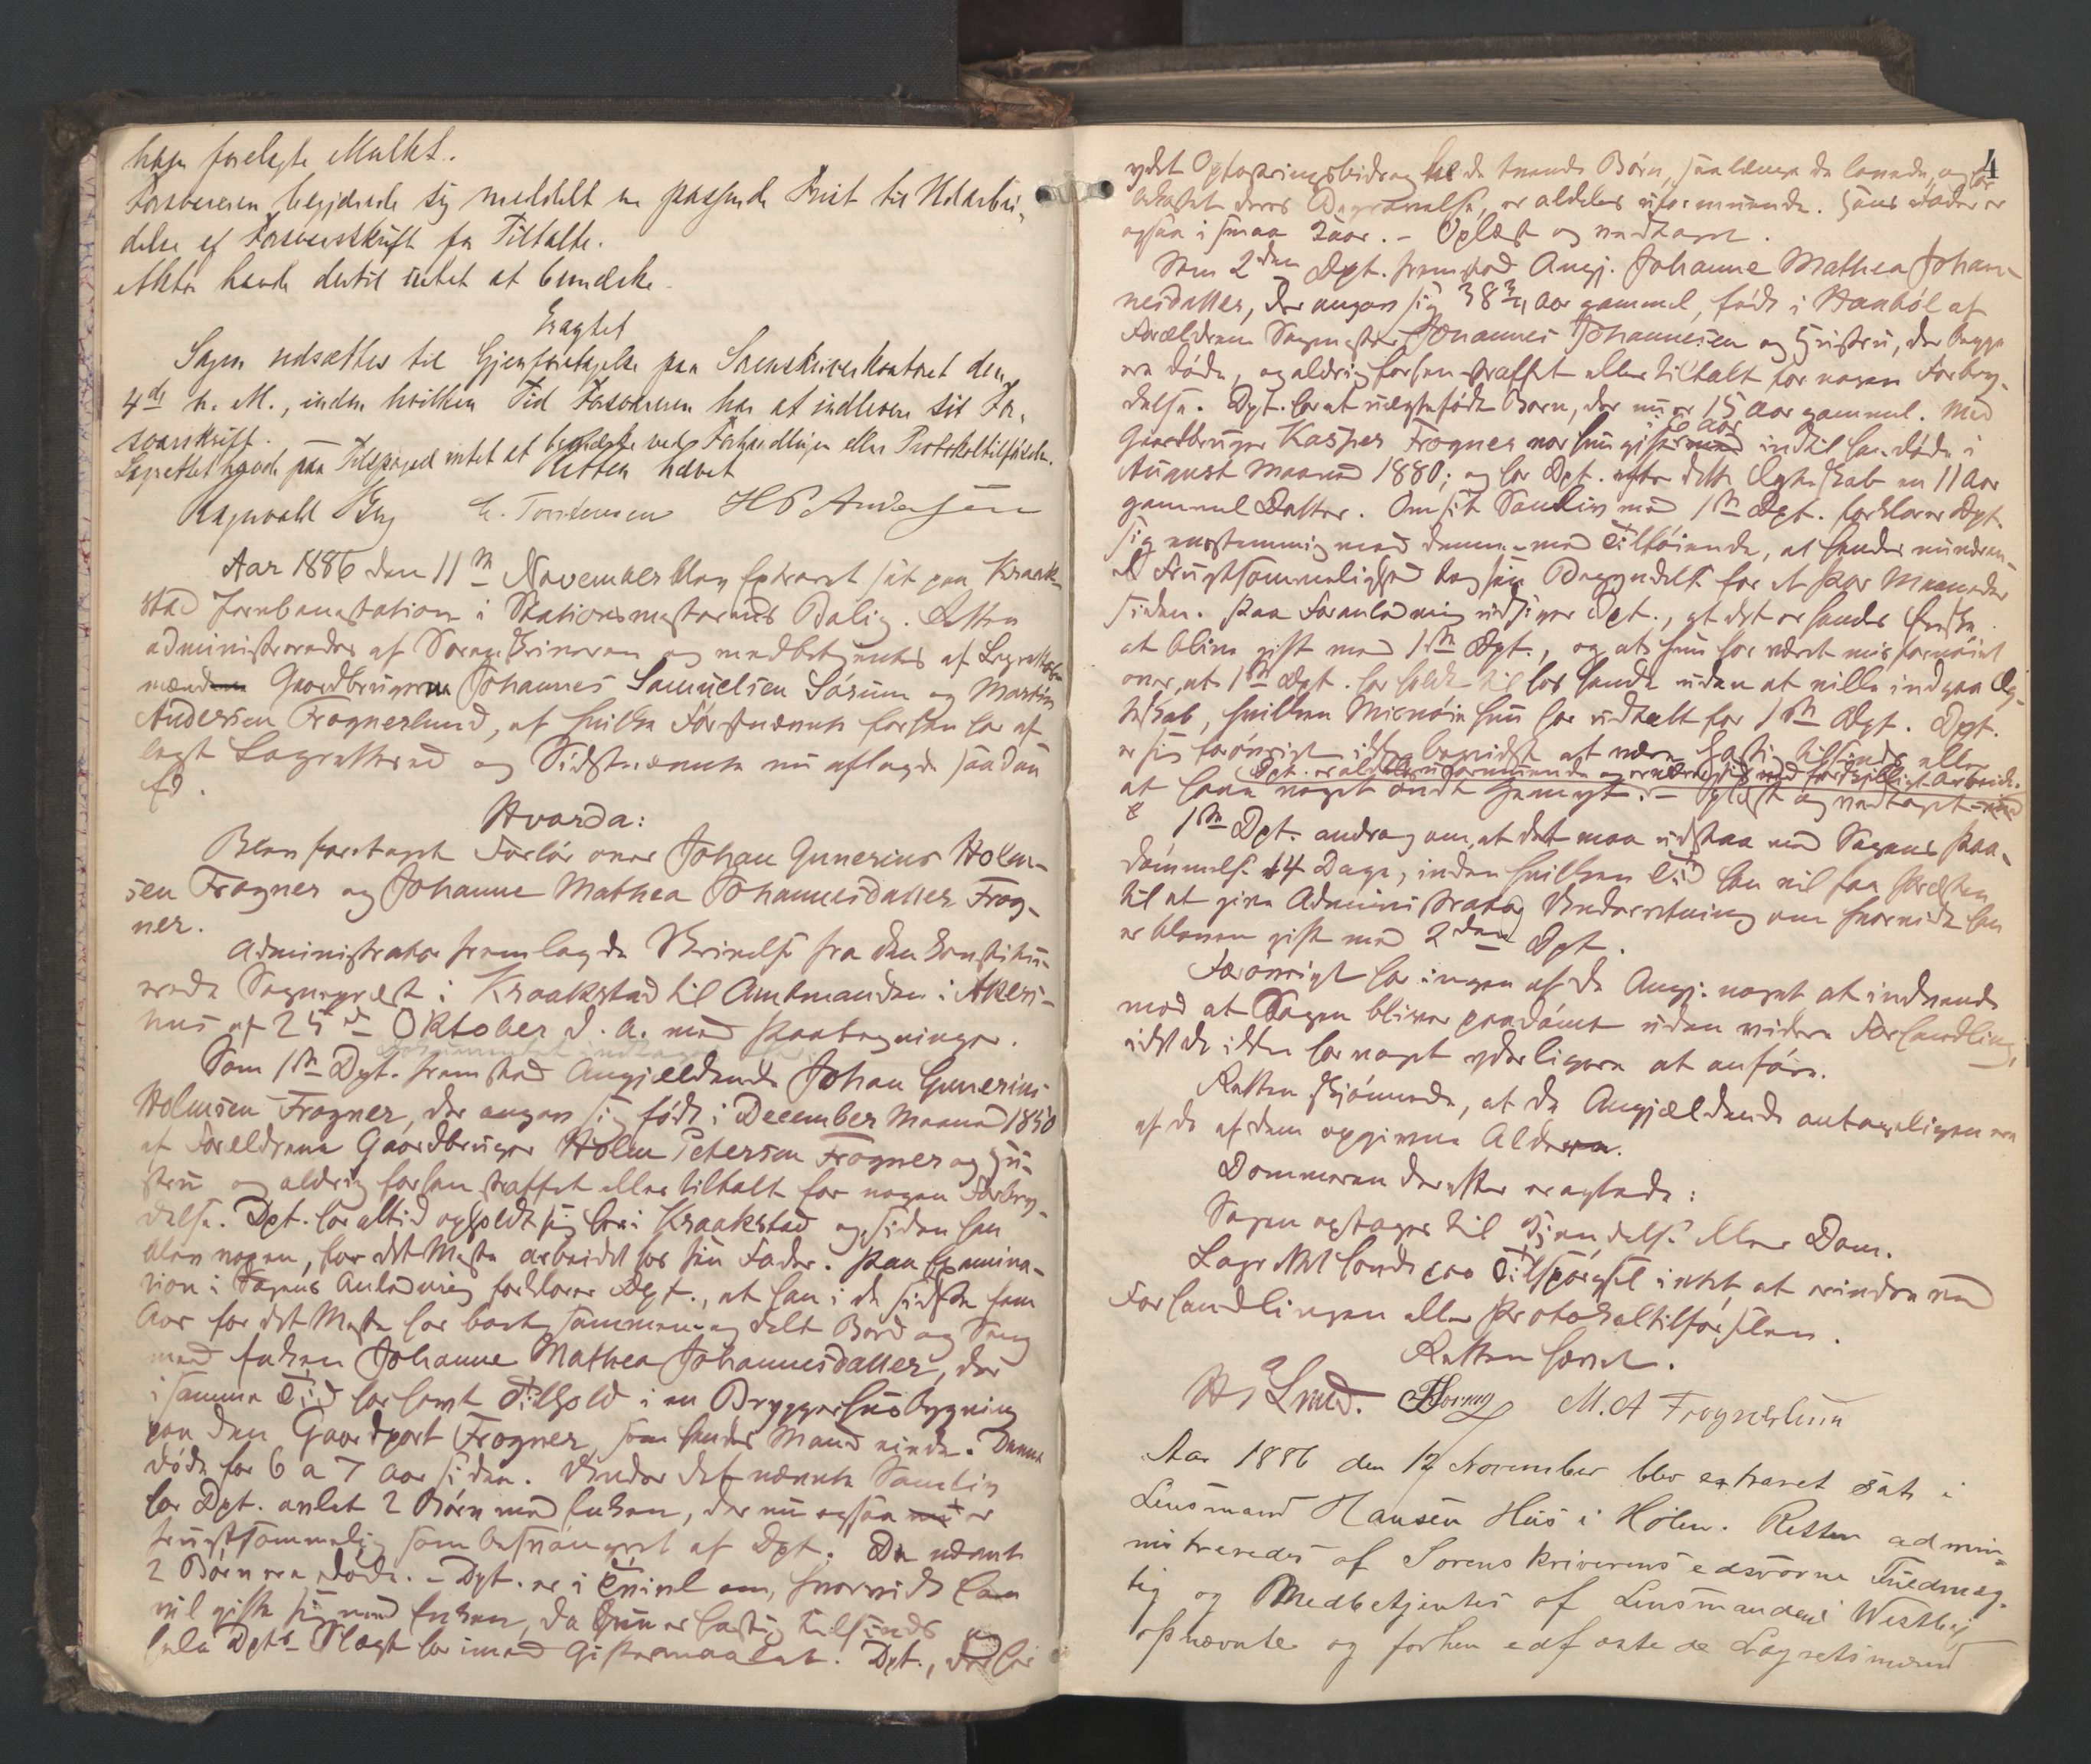 hasn forelagte Mulkt.
Forsvareren begjærede sig meddelt en passende Frist til Udarbei-
delse af Forsvarsskrift for Tiltalte.
Aktor havde dertil intet at bemærke.
Eragtet
Sagen udsættes til Gjenforetagelse paa Sorenskriverkontoret den
4de n. M., inden hvilken Tid Forsvareren har at indlevere sit For-
svarsskrift.
Lagrettet havde paa Tilspørgsel intet at bemærke ved Forhandlingen eller Protokoltilførselen.
Retten hævet
Ragnvald Berg H P Andersen
Aar 1886 den 11te November blev Extraret sat paa Kraak-
stad Jernbanestation i Stationsmesterens Bolig. Retten
administreredes af Sorenskriveren og medbetjentes af Lagrettes-
mænd Gaardbrugerne Johannes Samuelsen Sørum og Martin
Andersen Frognerlund, af hvilke Førstnævnte forhen har af-
lagt Lagrettesed og Sidstnævnte nu aflagde saadan
Ed.
Hvorda:
Blev foretaget Forhør over Johan Gunerius Holm-
sen Frogner og Johanne Mathea Johannesdatter Frog-
ner.
Administrator fremlagde Skrivelse fra den konstitu-
erede Sognepræst i Kraakstad til Amtmanden i Akers-
hus af 25de Oktober d. A. med Paategninger.
Som 1ste Dpt. fremstod Angjældende Johan Gunerius
Holmsen Frogner, der angav sig født i December Maaned 1850
af Forældrene Gaardbruger Holm Petersen Frogner og Hu-
stru og aldrig forhen straffet eller tiltalt for nogen Forbry-
delse. Dpt. har altid opholdt sig her i Kraakstad og siden han
blev voxen, for det Meste arbeidet hos sin Fader. Paa Examina-
tion i Sagens Anledning forklarer Dpt., at han i de sidste fem
Aar for det Meste har boet sammen og delt Bord og Seng
med Enken Johanne Mathea Johannesdatter, der
i samme Tid har havt Tilhold i en Bryggerhusbygning
paa den Gaardpart Frogner, som hendes Mand eiede. Denne
døde for 6 a 7 Aar siden. Under det nævnte Samliv
har Dpt. avlet 2 Børn med Enken, der nu ogsaa er
frugtsommelig som besvangret af Dpt. De nævnte
2 Børn ere døde. – Dpt. er i Tvivl om, hvorvidt han
vil gifte sig med Enken, da hun er hastig tilsinds og
hele Dpts Slægt har imod Giftermaalet. Dpt., der har
4
ydet Opfostringsbidrag til de tvende Børn, saalænge de levede, og har
bekostet deres Begravelse, er aldeles uformuende. Hans Fader er
ogsaa i smaa Kaar. – Oplæst og vedtaget.
Som 2den Dpt. fremstod Angj. Johanne Mathea Johan-
nesdatter, der angav sig 38 3/4 Aar gammel, født i Haabøl af
Forældrene Sagmester Johannes Johannesen og Hustru, der begge
ere døde, og aldrig forhen straffet eller tiltalt for nogen Forbry-
delse. Dpt. har et uægtefødt Barn, der nu er 15 Aar gammel. Med
Gaardbruger Kasper Frogner var hun gift i 6 Aar indtil han døde i
August Maaned 1880; og har Dpt. efter dette Ægteskab en 11 Aar
gammel Datter. Om sit Samliv med 1ste Dpt. forklarer Dpt.
sig enstemmig med denne med Tilføiende, at hendes nuværen-
de Frugtsommelighed tog sin Begyndelse for et Par Maaneder
siden. Paa Foranledning udsiger Dpt., at det er hendes Ønske
at blive gift med 1ste Dpt., og at hun har været misfornøiet
over, at 1ste Dpt. har holdt til hos hende uden at ville indgaa Æg-
teskab, hvilken Misnøie hun har udtalt for 1ste Dpt. Dpt.
er sig forøvrigt ikke bevidst at være hastig tilsinds eller
Dpt. er aldeles uformuende og ernærer sig med forskjelligt Arbeide.
at have noget ondt Gemyt. – Oplæst og vedtaget
1ste Dpt. androg om, at det maa udstaa med Sagens Paa-
dømmelse 14 Dage, inden hvilken Tid han vil faa Presten
til at give Administrator Underretning om hvorvidt han
er bleven gift med 2den Dpt.
Forøvrigt har ingen af de Angj. noget at indvende
mod at Sagen bliver paadømt uden videre Forhandling,
idet de ikke har noget yderligere at anføre.
Retten skjønnede, at de Angjældende antageligen ere
af de af dem opgivne Aldere.
Dommeren derefter eragtede:
Sagen optages til Kjendelse eller Dom.
Lagrettet havde paa Tilspørgsel intet at erindre ved
Forhandlingen eller Protokoltilførselen.
Retten hævet.
M. A Frognerlun
Aar 1886 den 12 November blev extraret sat i
Lensmand Hansen Hus i Hølen. Retten admin-
nistreredes af Sorenskriverens edsvorne Fuldmæg-
tig og Medbetjentes af Lensmanden i Westby
opnævnte og forhen edfæstede Lagretsmænd